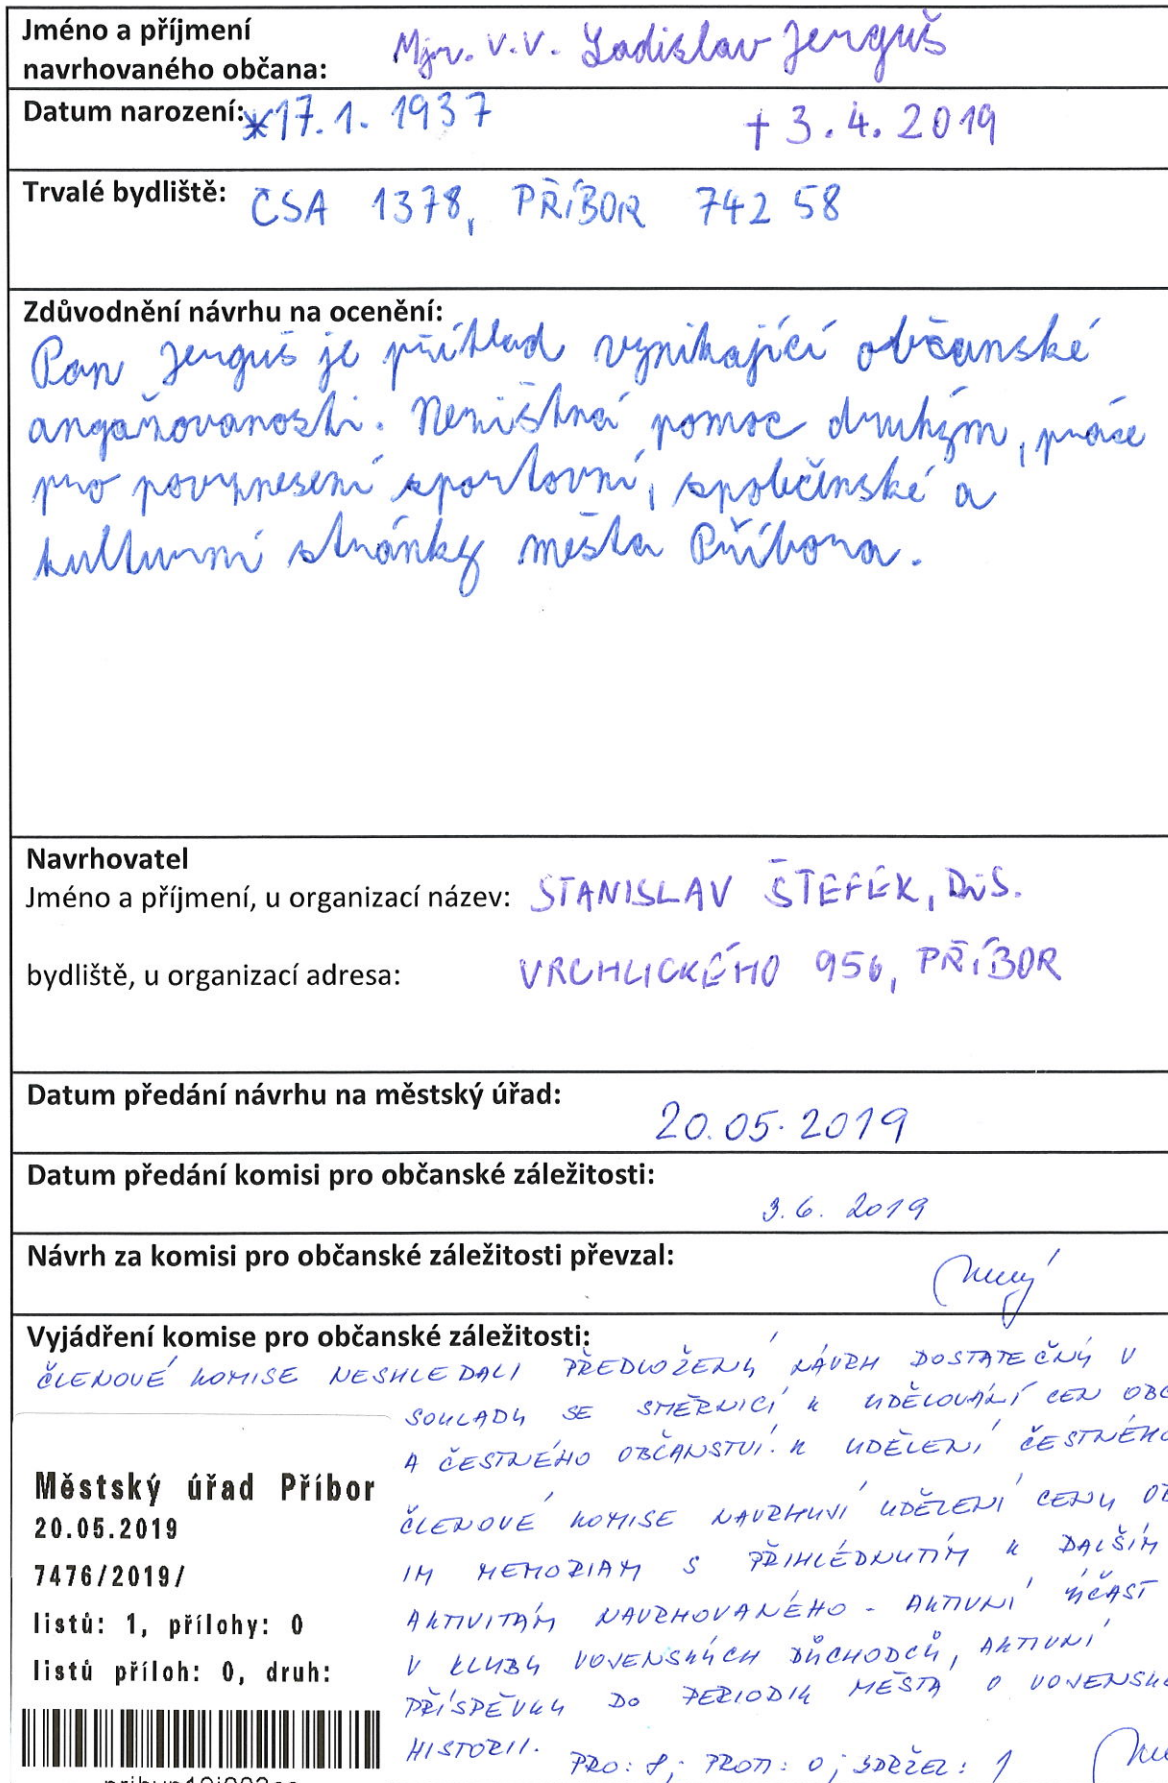 Jméno a příjmení
navrhovaného občana: Mjr. v.v. Ladislav Jerguš
Datum narození: *17.1. 1937 + 3.4.2019
Trvalé bydliště: ČSA 1378, PŘÍBOR 742 58
Zdůvodnění návrhu na ocenění:
Pan Jerguš je příklad vynikající občanské
angažovanosti. Nezištná pomoc druhým, práce
pro povznesení sportovní, společenské a
kulturní stránky města Příbora.
Navrhovatel
Jméno a příjmení, u organizací název: STANISLAV ŠTEFEK, DiS.
bydliště, u organizací adresa: VRCHLICKÉHO 956, PŘÍBOR
Datum předání návrhu na městský úřad:
20.05.2019
Datum předání komisi pro občanské záležitosti:
3.6. 2019
Návrh za komisi pro občanské záležitosti převzal:
Vyjádření komise pro občanské záležitosti:
ČLENOVÉ KOMISE NESHLEDALI PŘEDLOŽENÝ NÁVRH DOSTATEČNÝ V
SOULADU SE SMĚRNICÍ K UDĚLOVÁNÍ CEN OBC
A ČESTNÉHO OBČANSTVÍ. K UDĚLENÍ ČESTNÉHO
ČLENOVÉ KOMISE NAVRHUJÍ UDĚLENÍ CENY OB
IM MEMORIAM S PŘIHLÉDNUTÍM K DALŠÍM
AKTIVITÁM NAVRHOVANÉHO - AKTIVNÍ ÚČAST
V KLUBU VOJENSKÝCH DŮCHODCŮ, AKTIVNÍ
PŘÍSPĚVKY DO PERIODIK MĚSTA O VOJENSKÉ
HISTORII. PRO: 8; PROTI: 0; ZDRŽEL: 1
Městský úřad Příbor
20.05.2019
7476/2019/
listů: 1, přílohy: 0
listů příloh: 0, druh: